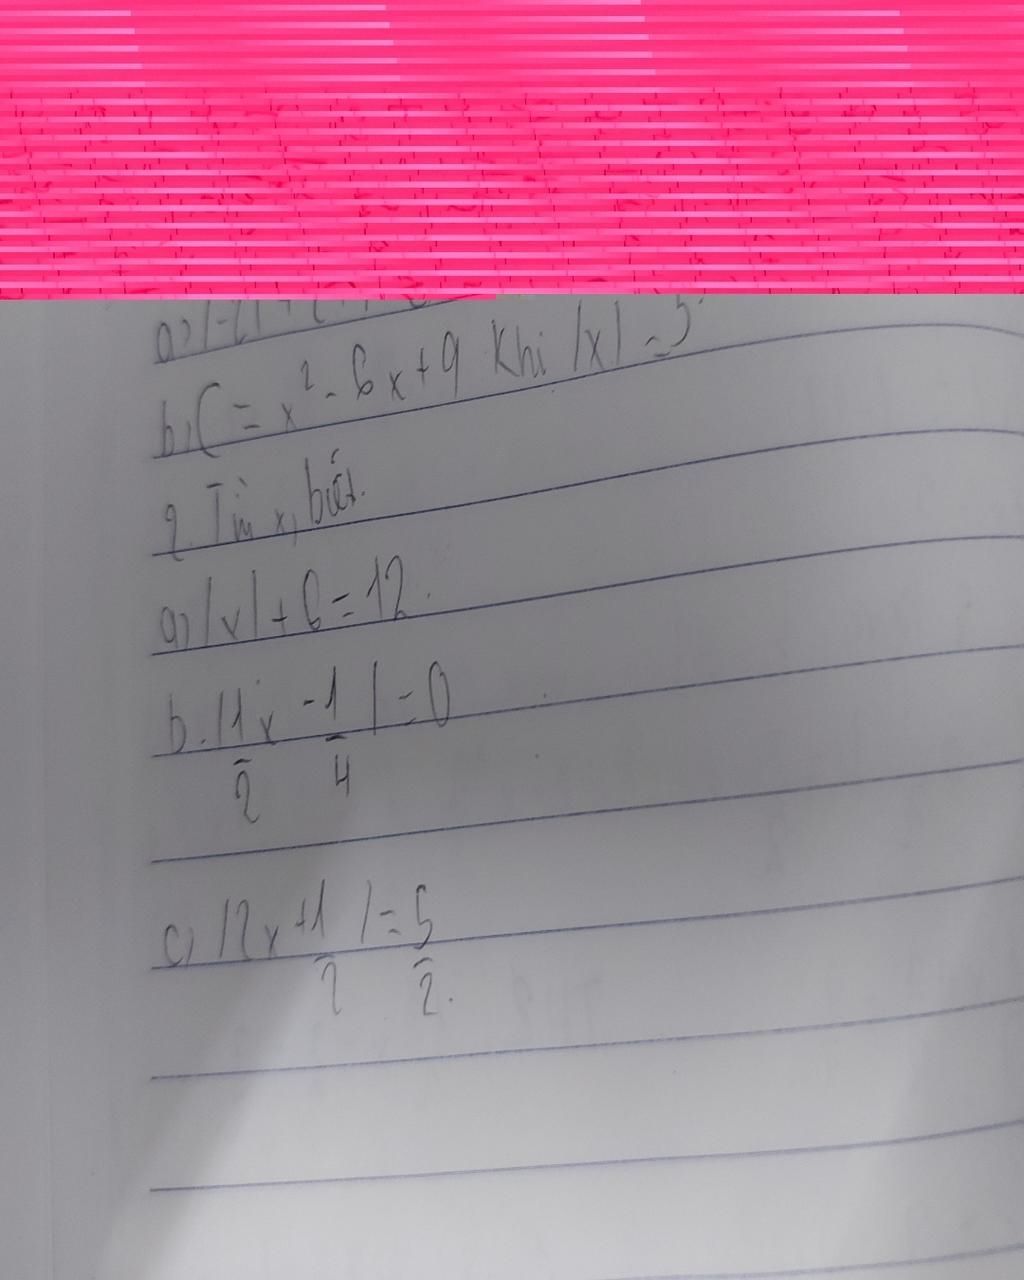 b, C = x² - 6x + 9 Khi |x| = 5
2. Tìm x, biết.
a) |x| + 6 = 12.
b. |1/2 x - 1/4| = 0
c) |2x + 1/2| = 5/2.